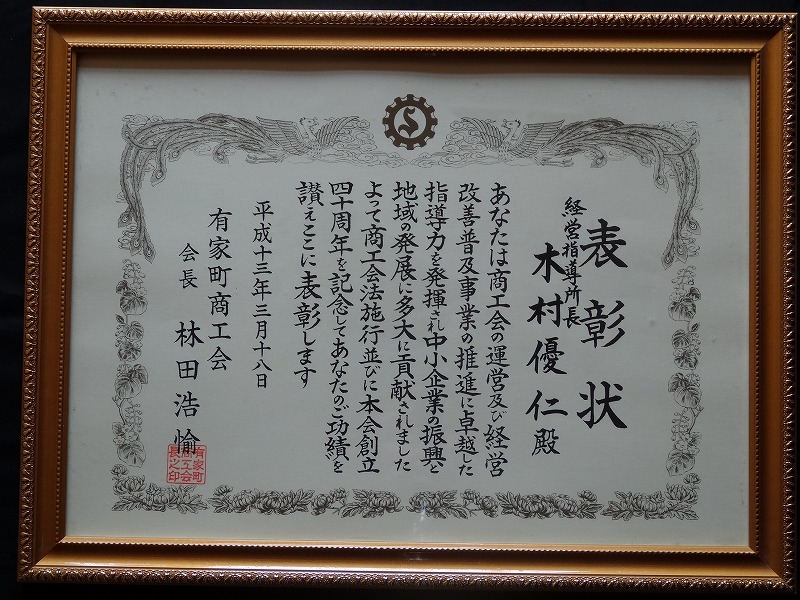 表彰状
経営指導所長
木村優仁殿
あなたは商工会の運営及び経営
改善普及事業の推進に卓越した
指導力を発揮され中小企業の振興と
地域の発展に多大に貢献されました
よって商工会法施行並びに本会創立
四十周年を記念してあなたのご功績を
讃えここに表彰します
平成十三年三月十八日
有家町商工会
会長 林田浩愉
有家町
商工会
長之印